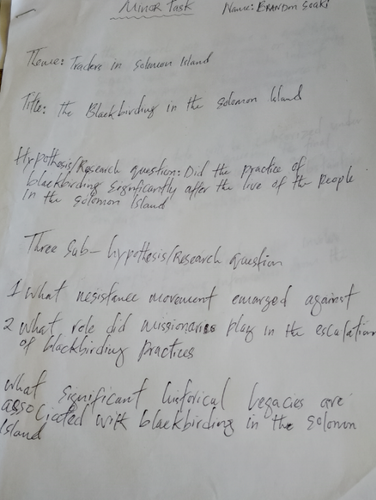 MINOR TASK Name: BRANDON SOAKI
Theme: Traders in Solomon Island
Title: The Blackbirding in the Solomon Island
Hypothesis/Research question: Did the practice of
blackbirding significantly after the live of the people
in the Solomon Island
Three sub-hypothesis/Research question
1 What resistance movement emarged against
2 What role did missionaries play in the escalation
of blackbirding practices
What significant historical legacies are
associated with blackbirding in the Solomon
Island